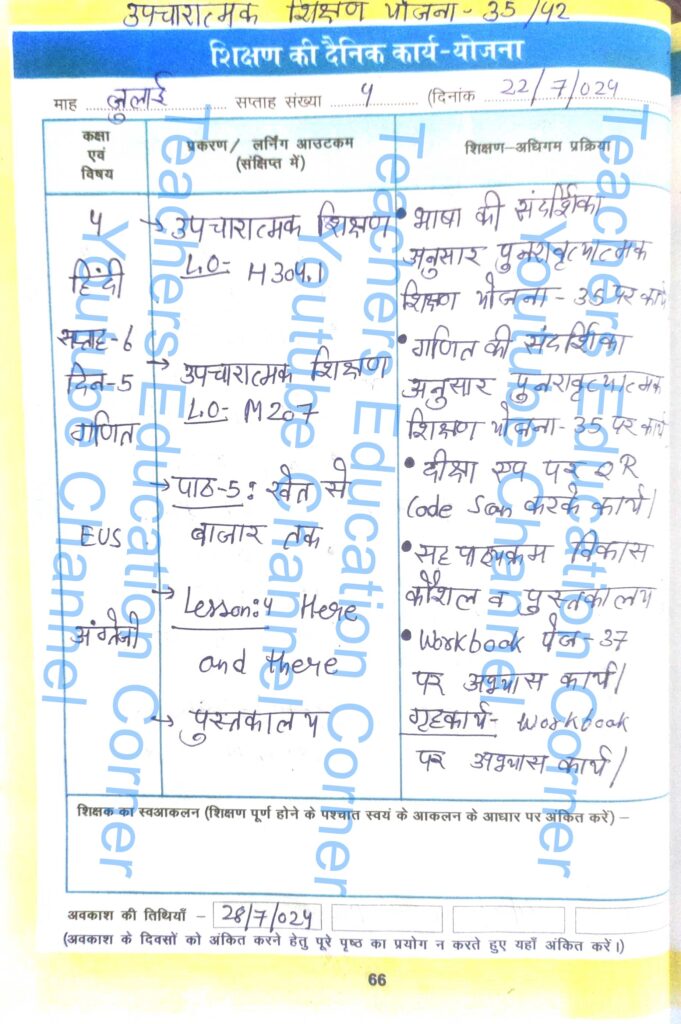 उपचारात्मक शिक्षण योजना - 35/42
शिक्षण की दैनिक कार्य-योजना
माह जुलाई सप्ताह संख्या 4 (दिनांक 22/7/024
कक्षा एवं विषय
प्रकरण/ लर्निंग आउटकम (संक्षिप्त में)
शिक्षण-अधिगम प्रक्रिया
4
हिंदी
सप्ताह-6
दिन-5
गणित
EUS
अंग्रेजी
→ उपचारात्मक शिक्षण
L.O- H304.1
→ उपचारात्मक शिक्षण
L.O- M207
→ पाठ-5: खेत से
बाजार तक
→ Lesson:4 Here
and there
→ पुस्तकालय
• भाषा की संदर्शिका
अनुसार पुनरावृत्यात्मक
शिक्षण योजना - 35 पर कार्य
• गणित की संदर्शिका
अनुसार पुनरावृत्यात्मक
शिक्षण योजना- 35 पर कार्य
• दीक्षा एप पर QR
Code Scan करके कार्य।
• सह पाठ्यक्रम विकास
कौशल व पुस्तकालय
• Workbook पेज-37
पर अभ्यास कार्य।
गृहकार्य- Workbook
पर अभ्यास कार्य।
शिक्षक का स्वआकलन (शिक्षण पूर्ण होने के पश्चात स्वयं के आकलन के आधार पर अंकित करें) –
अवकाश की तिथियाँ – 28/7/024
(अवकाश के दिवसों को अंकित करने हेतु पूरे पृष्ठ का प्रयोग न करते हुए यहाँ अंकित करें।)
66
Teachers Education Corner
Youtube Channel
Teachers Education Corner
Youtube Channel
Teachers Education Corner
Youtube Channel